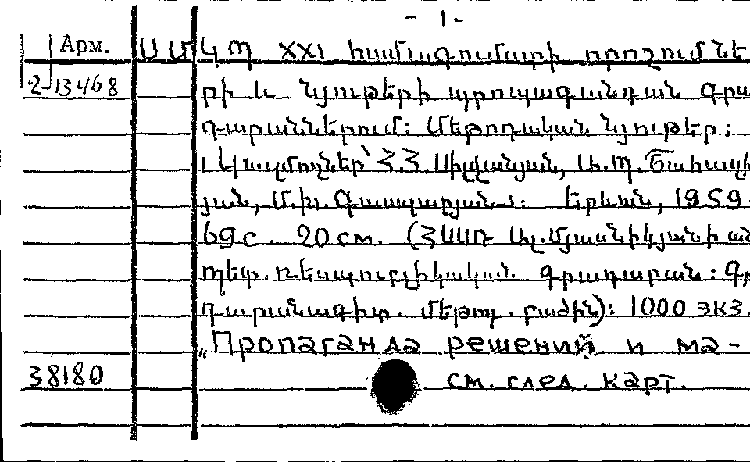 - 1 -
Арм. ՍՄԿՊ XXI համագումարի որոշումնե
2-13468 րի և նյութերի պրոպագանդան գրա
դարաններում: Մեթոդական նյութեր:
Կազմողներ՝ Հ.Հ.
յան, Մ.Խ. Գասպարյան: Երևան, 1959
69 с. 20 см. (ՀՍՍՌ Ալ. Մյասնիկյանի ան
պետ. ռեսպուբլիկական գրադարան: Գր
դարանագիտ. մեթոդ. բաժին): 1000 экз.
„Пропаганда решений и ма-
38180 см. след. карт.